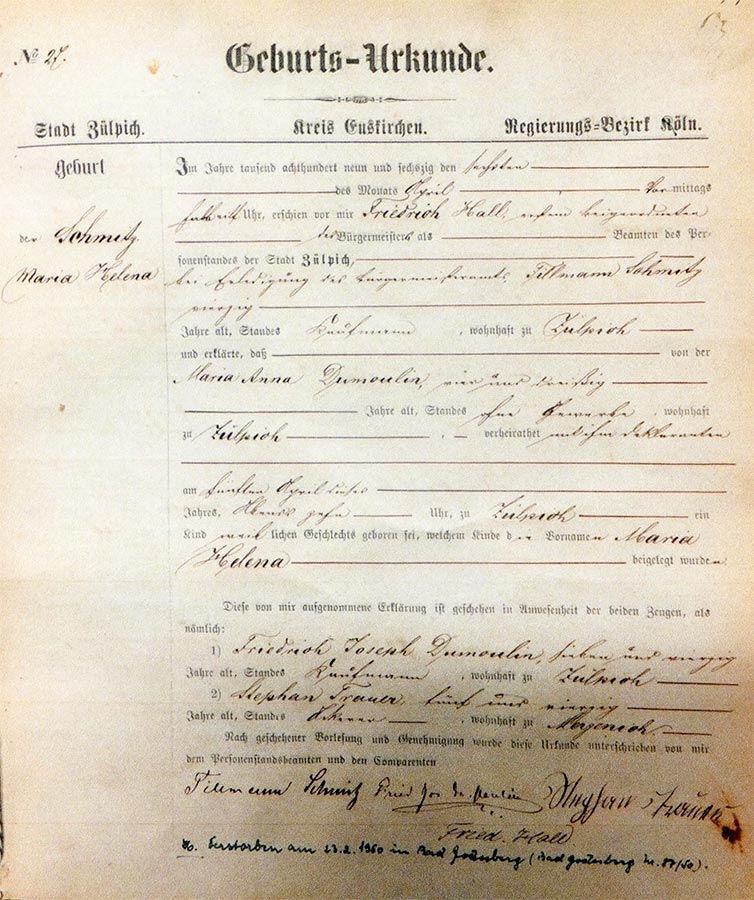 No 27.
Geburts-Urkunde.
Stadt Zülpich. Kreis Euskirchen. Regierungs-Bezirk Köln.
Geburt
der Schmitz
Maria Helena
Im Jahre tausend achthundert neun und sechszig den sechsten
des Monats April Vor mittags
Uhr, erschien vor mir Friedrich Hall, erstem Beigeordneten
des Bürgermeisters als Beamten des Per-
sonenstandes der Stadt Zülpich,
bei Erledigung des Bürgermeisteramts, Tillmann Schmitz
vierzig
Jahre alt, Standes Kaufmann, wohnhaft zu Zülpich
und erklärte, daß von der
Maria Anna Dumoulin, vier und dreißig
Jahre alt, Standes ohne Gewerbe, wohnhaft
zu Zülpich, verheirathet mit ihm Deklaranten
am fünften April dieses
Jahres, Abends zehn Uhr, zu Zülpich ein
Kind weiblichen Geschlechts geboren sei, welchem Kinde die Vornamen Maria
Helena beigelegt wurden
Diese von mir aufgenommene Erklärung ist geschehen in Anwesenheit der beiden Zeugen, als
nämlich:
1) Friedrich Joseph Dumoulin, sieben und vierzig
Jahre alt, Standes Kaufmann, wohnhaft zu Zülpich
2) Stephan Trauer, fünf und vierzig
Jahre alt, Standes Ackerer, wohnhaft zu
Nach geschehener Vorlesung und Genehmigung wurde diese Urkunde unterschrieben von mir
dem Personenstandsbeamten und den Comparenten
Tillmann Schmitz Fried Jos du Moulin Stephan Trauer
Fried. Hall
Verstorben am 23.2.1950 in Bad Godesberg (Bad Godesberg Nr. 87/50).